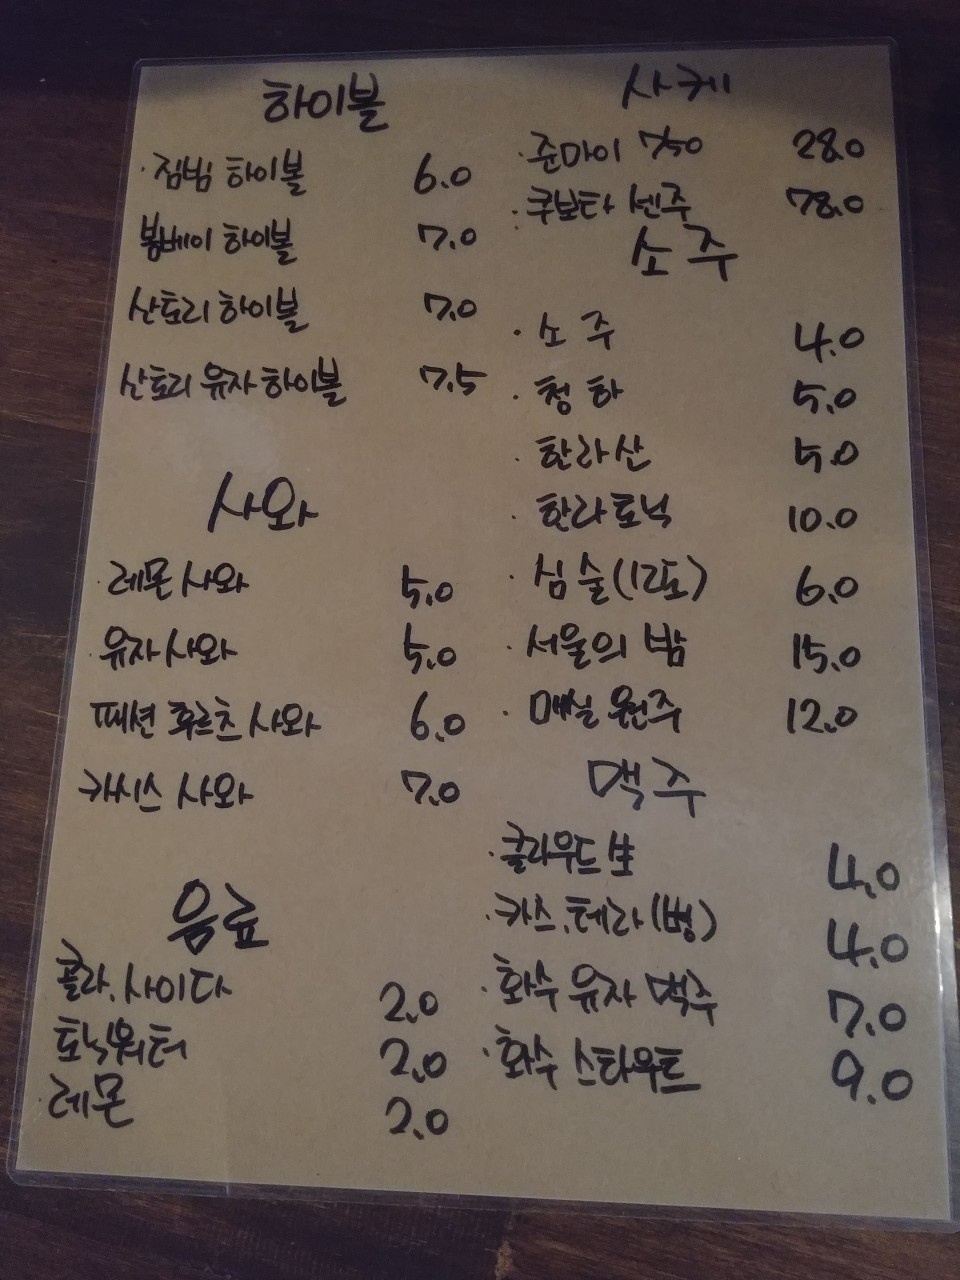 하이볼
· 짐빔 하이볼 6.0
봄베이 하이볼 7.0
산토리 하이볼 7.0
산토리 유자 하이볼 7.5
사와
· 레몬 사와 5.0
· 유자 사와 5.0
패션 후르츠 사와 6.0
카시스 사와 7.0
음료
콜라. 사이다 2.0
토닉워터 2.0
· 레몬 2.0
사케
· 준마이 750 28.0
· 쿠보타 센주 78.0
소주
· 소주 4.0
· 청하 5.0
· 한라산 5.0
· 한라토닉 10.0
· 심술(12도) 6.0
· 서울의 밤 15.0
· 매실 원주 12.0
맥주
· 클라우드 생 4.0
· 카스. 테라(병) 4.0
· 화수 유자 맥주 7.0
· 화수 스타우트 9.0